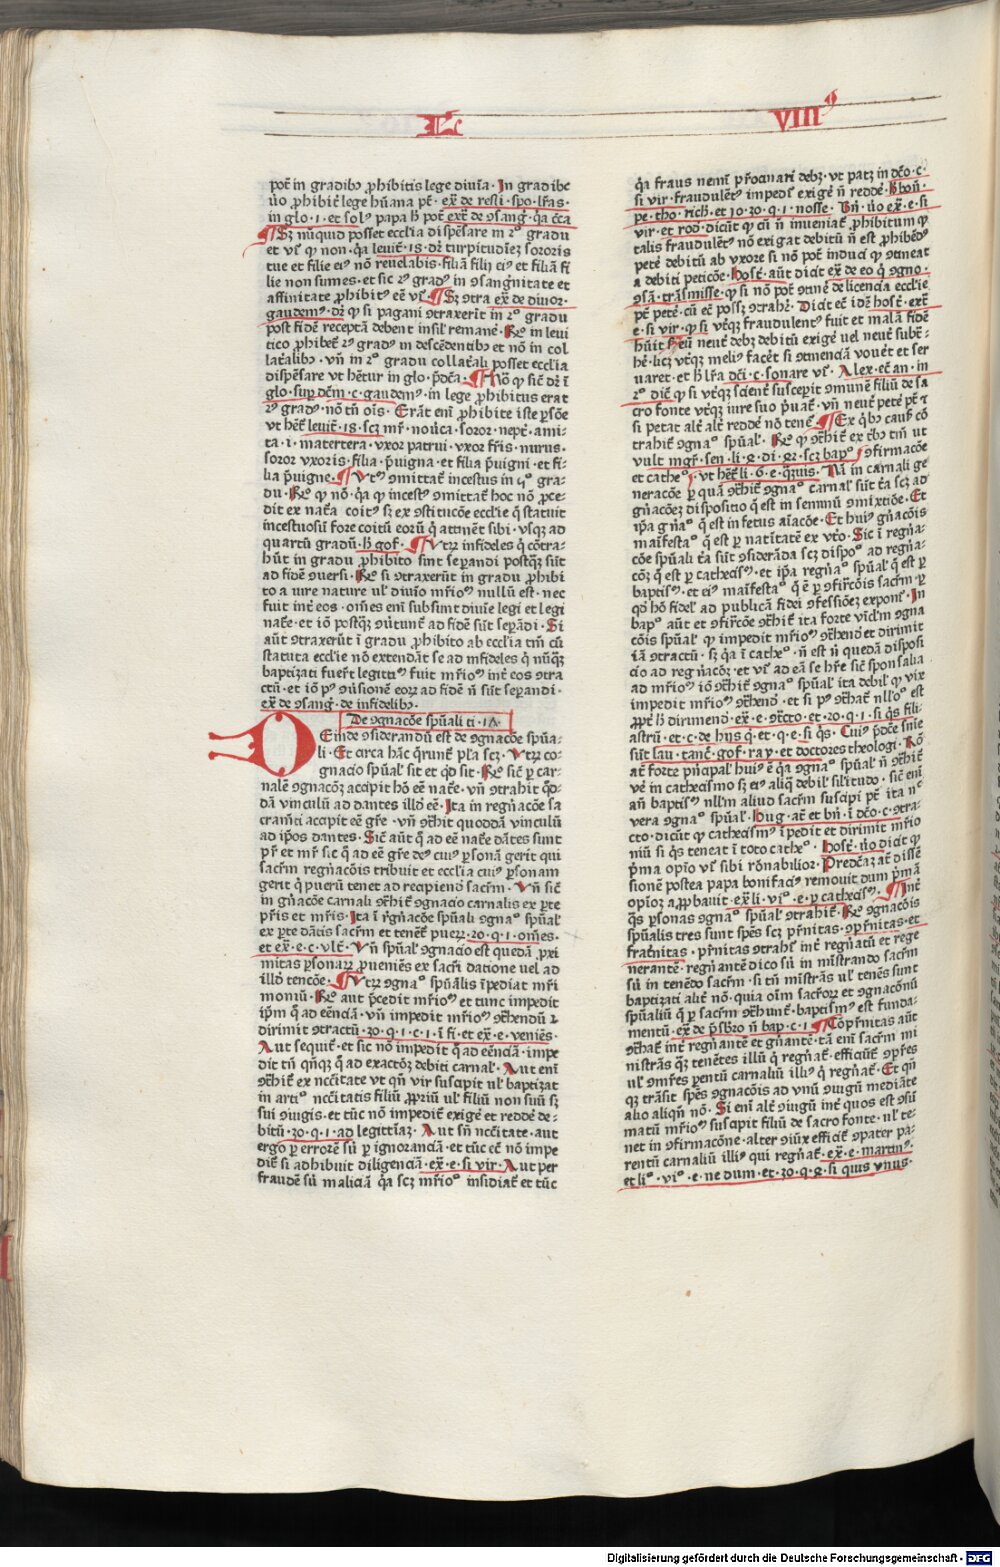 L VIII⁹
pot̄ in gradibꝰ ꝓhibitis lege diuīa · In gradibꝰ
ūo ꝓhibit̄ lege hūana pt̄ · ex̄ de resti · spo · lr̄as ·
in glo · 1 · et solꝰ papa
et vr̄ ꝙ non · q̄a leuit̄ · 18 · dr̄ turpitudīeꝫ sororis
tue et filie eiꝰ nō reuelabis · filiā filij eiꝰ et filiā fi
lie non sumes · et sic 2ꝰ gradꝰ in ꝯsanḡnitate et
affinitate ꝓhibitꝰ eē vr̄ · ¶ Sꝫ ꝯtra ex̄ de diuor·
gaudemꝰ · dr̄ ꝙ si pagani ꝯtraxerīt in 2ꝰ gradu
post fidē receptā debent insil̄ remanē · Rꝰ in leui
tico ꝓhibet̄ 2ꝰ gradꝰ in descēdentibꝰ et nō in col
lat̄alibꝰ · vn̄ in 2ꝰ gradu collat̄ali posset ecclīa
dispēsare vt hētur in glo · p̄dc̄a · ¶
glo · suꝑ dc̄m · c · gaudemꝰ · in lege ꝓhibitus erat
2ꝰ gradꝰ · nō tn̄ oīs · Erāt enī ꝓhibite iste ꝑsōe
vt het̄ leuit̄ · 18 · scꝫ mr̄ · nouca · soror · nept̄ · ami·
ta · 1 · matertera · vxor patrui · vxor fr̄is · nurus ·
soror vxoris · filia · p̄uigna · et filia p̄uigni · et fi·
lia p̄uigne · ¶ Vtꝝ ꝯmittat̄ incestus in 4ꝰ gra·
du · Rꝰ ꝙ nō · q̄a ꝙ incestꝰ ꝯmittat̄ hoc nō ꝓce·
dit ex nat̄a coitꝰ sꝫ ex ꝯstitucōe ecclīe q̄ statuit
incestuosū fore coitū eorū q̄ attinēt sibi · vsqꝫ ad
quartū gradū · h̄ gof · ¶ Vtꝝ infideles q̄ cōtra·
hūt in gradu ꝓhibito sint seꝑandi postq̄ꝫ sūt
ad fidē ꝯuersi · Rꝰ si ꝯtraxerūt in gradu ꝓhibi
to a iure nature ul̄ diuīo mr̄ioꝰ nullū est · nec
fuit int̄ eos · oīnes enī subsunt diuīe legi et legi
nat̄e · et iō postq̄ꝫ ꝯu̓tunt̄ ad fidē sūt seꝑādi · Si
aūt ꝯtraxerūt ī gradu ꝓhibito ab ecclīa tm̄ cū
statuta ecclīe nō extendāt se ad infideles q̄ nūq̄ꝫ
baptizati fuer̄t legittīꝰ fuit mr̄ioꝰ int̄ eos ꝯtra
ctū · et iō pꝰ ꝯu̓sionē eoꝝ ad fidē n̄ sūt seꝑandi ·
ex̄ de ꝯsang̓ · de infidelibꝰ ·
De ꝯgnacōe spūali ti · 1Λ ·
DEinde ꝯsiderandū est de ꝯgnacōe spūa·
li · Et circa hāc q̄runt̄ pl̄a scꝫ · Vtꝝ co·
gnacio spūal̄ sit et qd̄ sit · Rꝰ sic̄ ꝑ car·
nalē ꝯgnacōeꝫ accipit hō eē nat̄e · vn̄ ꝯtrahit qd̄·
dā vinculū ad dantes illd̄ eē · Ita in regn̄acōe sa
cramēti accipit eē gr̄e · vn̄ ꝯt̄hit quoddā vinculū
ad ip̄os dantes · Sic̄ aūt q̄ ad eē nat̄e dātes sunt
pr̄ et mr̄ sic q̄ ad eē gr̄e deꝰ cuiꝰ ꝑsonā gerit qui
sacr̄m regn̄acōis tribuit et ecclīa cuiꝰ ꝑsonam
gerit q̄ puerū tenet ad recipiend̄ sacr̄m · Vn̄ sic̄
in gn̄acōe carnali ꝯt̄hit̄ ꝯgnacio carnalis ex ꝑte
pr̄is et mr̄is · Ita ī r̄gn̄acōe spūali ꝯgnaꝰ spūal̄
ex ꝑte dātis sacr̄m et tenēt̄ pueꝝ · 20 · q · 1 · om̄es ·
et ex̄ · e · c · vlt̄ · Vn̄ spūal̄ ꝯgnacio est quedā ꝓxi
mitas ꝑsonaꝝ ꝓueniēs ex sacr̄i datione vel ad
illd̄ tencōe · ¶ Vtꝝ ꝯgnaꝰ spūalis īpediat mr̄i
moniū · Rꝰ aut p̄cedit mr̄ioꝰ et tunc impedit
ip̄m q̄ ad eēnciā · vn̄ impedit mr̄ioꝰ ꝯt̄hendū ⁊
dirimit ꝯtractū · 20 · q · 1 · c · 1 · ī fi · et ex̄ · e · veniēs ·
Aut sequit̄ · et sic nō impedit q̄ ad eēnciā · impe
dit tn̄ qn̄qꝫ q̄ ad exactōeꝫ debiti carnal̄ · Aut enī
ꝯt̄hit̄ ex nc̄c̄itate vt qn̄ vir suscipit ul̄ baptizat
in artiꝰ nc̄c̄itatis filiū ꝓpriū ul̄ filiū non suū sꝫ
sui ꝯiugis · et tūc nō impedit̄ exiḡe et redde de·
bitū · 20 · q · 1 · ad legittīaꝫ · Aut sn̄ nc̄c̄itate · aut
ergo ꝑ errorē sū ꝑ ignoranciā · et tūc ec̄ nō impe
dit̄ si adhibuit diligenciā · ex̄ · e · si vir · Aut per
fraudē sū maliciā q̄a scꝫ mr̄ioꝰ insidiat̄ et tūc
q̄a fraus nemī p̄rocinari debꝫ · vt patꝫ in dc̄o · c ·
si vir · fraudulēt̄ꝰ impedit̄ exiḡe n̄ reddē ·
pe · tho · rich · et 10 · 20 · q · 1 · nosse · Vn̄ · ūo ex̄ · e · si
vir · et rod̄ · dicūt ꝙ cū n̄ inueniat̄ ꝓhibitum ꝙ
talis fraudulēt̄ꝰ nō exigat debitū n̄ est ꝓhibēdꝰ
petē debitū ab vxore si nō pot̄ induci ꝙ ꝯtineat
a debiti peticōe · host̄ · aūt dicit ex̄ de eo q̄ ꝯgno ·
ꝯsā · trāsmisse · ꝙ si nō pot̄ ꝯtinē de licencia ecclīe
pt̄ petē · cū ec̄ possꝫ ꝯtrah̄ · Dicit ec̄ id̄ host̄ · ext̄
e · si vir · ꝙ si vt̄qꝫ fraudulentꝰ fuit et malā fidē
neut̄ debꝫ debitū exiḡe vel neut̄ subt̄·
hē · licꝫ vt̄qꝫ meliꝰ facēt si ꝯtinenciā vouēt et ser
uaret · et h̄ lr̄a dc̄i · c · sonare vr̄ · Alex · ec̄ an · in
2ꝰ dic̄ ꝙ si vt̄qꝫ scient̄ susceꝑit ꝯmunē filiū de sa
cro fonte vt̄qꝫ iure suo p̄uat̄ · vn̄ neut̄ petē pt̄ ⁊
si petat alt̄ alt̄ reddē nō tenet̄ · ¶ Ex qb̄ꝰ causꝭ cō
trahit̄ ꝯgnaꝰ spūal̄ · Rꝰ ꝙ ꝯt̄hit̄ ex tribꝰ tm̄ ut
vult mgr̄ · sen̄ · li · 4 · di · 42 · scꝫ bapꝰ · ꝯfirmacōe
et catheꝰ · vt het̄ li · 6 · e · q̄uis · Nā in carnali ge
neracōe ꝑ quā ꝯt̄hit̄ ꝯgnaꝰ carnal̄ sūt t̄a scꝫ ad
gn̄acōeꝫ dispositio q̄ est in seminū ꝯmixtiōe · Et
ip̄a gn̄aꝰ q̄ est in fetus aīacōe · Et huiꝰ gn̄acōis
maīfestaꝰ q̄ est ꝑ natiītatē ex vt̓o · Sic ī regn̄a·
cōe spūali t̄a sūt ꝯsiderāda scꝫ dispoꝰ ad regn̄a·
cōeꝫ q̄ est ꝑ cathecisꝰ · et ip̄a regn̄aꝰ spūal̄ q̄ est ꝑ
baptisꝰ · et eiꝰ maīfestaꝰ q̄ ē ꝑ ꝯfirc̄ois sacr̄m · ꝑ
qd̄ hō fidel̄ ad publicā fidei ꝯfessiōeꝫ exponit̄ · In
bapꝰ aūt et ꝯfircōe ꝯt̄hit̄ ita forte vīcl̄m ꝯgna
cōis spūal̄ ꝙ impedit mr̄ioꝰ ꝯt̄hend̄ et dirimit
iā ꝯtractū · sꝫ q̄a ī catheꝰ · n̄ est nī quedā disposi
cio ad regn̄acōeꝫ · et vr̄ ad eā se hr̄e sic̄ sponsalia
ad mr̄ioꝰ iō ꝯt̄hit̄ ꝯgnaꝰ spūal̄ ita debil̄ ꝙ vix
impedit mr̄ioꝰ ꝯt̄hend̄ · et si pꝰ ꝯt̄hat̄ nlꝉoꝰ est
ꝓpt̄ h̄ dirimend̄ · ex̄ · e · ꝯt̄cto · et · 20 · q · 1 · si q̄s fili·
astrū · et · c · de hijs q̄ · et · q · e · si q̄s · Cuiꝰ p̄dc̄e snīe
sūt lau · tanc̄ · gof · ray · et doctores theologi ·
at̄ forte p̄ncipal̄ huiꝰ ē q̄a ꝯgnaꝰ spūal̄ n̄ ꝯt̄hit̄
vē in cathecismo sꝫ eiꝰ aliq̄ debil̄ sil̄itudo · sic̄ enī
an̄ baptisꝰ nll̄m aliud sacr̄m suscipi pt̄ ita nᶜ
vera ꝯgnaꝰ spūal̄ · hug · at̄ et bn̄ · ī dc̄o · c · ꝯtra·
cto · dicūt ꝙ cathecismꝰ īpedit et dirimit mr̄io
niū si q̄s teneat ī toto catheꝰ · host̄ · ūo dicit ꝙ
p̄ma opīo vr̄ sibi rōnabilior · Predc̄aꝫ at̄ dissē
sionē postea papa bonifaciꝰ remouit dum p̄mā
opīoꝫ aꝓbauit · ex̄ · li · viꝰ · e · ꝑ cathecisꝰ · ¶ Int̄
q̄s ꝑsonas ꝯgnaꝰ spūal̄ ꝯtrahit̄ · Rꝰ ꝯgnacōis
spūalis tres sunt spēs scꝫ pr̄nitas · ꝯpr̄nitas · et
frat̄nitas · pr̄nitas ꝯtrahr̄ int̄ regn̄atū et rege
nerantē · regn̄antē dico sū in mīstrando sacr̄m
sū in tenēdo sacr̄m · si tn̄ mīstrās ul̄ tenēs sunt
baptizati alit̄ nō · quia oīm sacr̄oꝝ et ꝯgnacōnū
spūaliū q̄ ꝑ sacr̄m ꝯt̄hunt̄ · baptismꝰ est funda·
mentū · ex̄ de p̄sb̄ro n̄ bap · c · 1 · ¶ Cōpr̄nitas aūt
ꝯt̄hat̄ int̄ regn̄antē et gn̄antē · tā enī sacr̄m mi
nistrās q̄ꝫ tenētes illū q̄ regn̄at̄ · efficiūt̄ ꝯpr̄es
ul̄ ꝯmr̄es ꝑentū carnaliū illiꝰ q̄ regn̄at̄ · Et qn̄
qꝫ trāsit spēs ꝯgnacōis ad vnū ꝯiugū mediāte
alio aliqn̄ nō · Si enī alt̄ ꝯiugū int̄ quos est ꝯsū
matū mr̄ioꝰ suscipit filiū de sacro fonte · ul̄ te·
net in ꝯfirmacōne · alter ꝯiūx efficit̄ ꝯpater pa·
rentū carnaliū illiꝰ qui regn̄at̄ · ex̄ · e · martinꝰ ·
et liꝰ · viꝰ · e · ne dum · et · 20 · q · 4 · si quis vnus ·
Digitalisierung gefördert durch die Deutsche Forschungsgemeinschaft - DFG